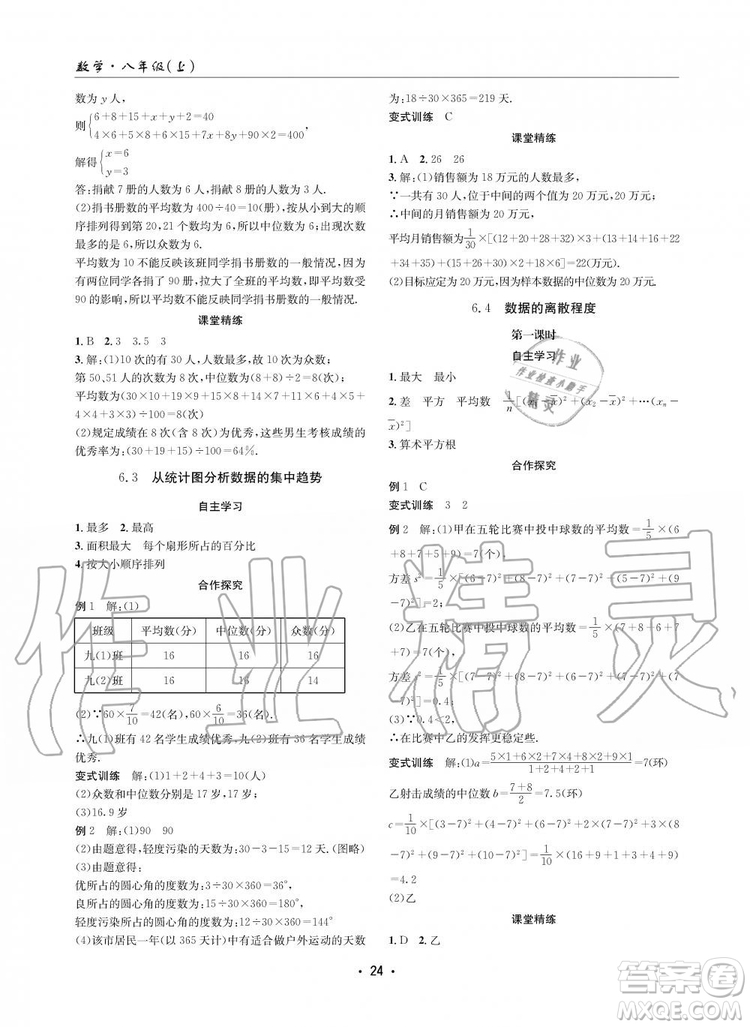 数学·八年级(上)
数为 y 人,
则{6+8+15+x+y+2=40
4×6+5×8+6×15+7x+8y+90×2=400,
解得{x=6
y=3
答:捐献 7 册的人数为 6 人,捐献 8 册的人数为 3 人.
(2)捐书册数的平均数为 400÷40=10(册),按从小到大的顺
序排列得到第 20,21 个数均为 6,所以中位数为 6;出现次数
最多的是 6,所以众数为 6.
平均数为 10 不能反映该班同学捐书册数的一般情况,因
为有两位同学各捐了 90 册,拉大了全班的平均数,即平均数受
90 的影响,所以平均数不能反映该班同学捐书册数的一般情况.
课堂精练
1. B 2. 3 3.5 3
3. 解:(1)10 次的有 30 人,人数最多,故 10 次为众数;
第 50,51 人的次数为 8 次,故中位数为(8+8)÷2=8(次);
平均数为(10×30+9×15+8×15+7×20+6×5+5×4+
4×4+3×5+2×3+1×3)÷100=8(次)
(2)规定成绩在 8 次(含 8 次)为优秀,这些男生考核成绩的优
秀率为:(30+15+19)÷100=64%.
6.3 从统计图分析数据的集中趋势
自主学习
1. 最多 2. 最高
3. 面积最大 每个扇形所占的百分比
4. 按大小顺序排列
合作探究
例 1 解:(1)
班级 平均数(分) 中位数(分) 众数(分)
九(1)班 16 16 16
九(2)班 16 16 14
(2)∵60×7/10=42(名),60×6/10=36(名).
∴九(1)班有 42 名学生成绩优秀,九(2)班有 36 名学生成绩优
秀.
变式训练 解:(1)1+2+3+4=10
(2)众数和中位数分别是 17 岁、17 岁
(3)16.9 岁
例 2 解:(1)90 90
(2)由题意得,轻度污染的天数为:30-3-15=12 天.(图略)
(3)由题意得:
优所占的圆心角的度数为:3÷30×360°=36°
良所占的圆心角的度数为:15÷30×360°=180°
轻度污染所占的圆心角的度数为:12÷30×360°=144°
(4)该市居民一年(以 365 天计)中有适合做户外运动的天数
为:18÷30×365=219 天.
变式训练 C
课堂精练
1. A 2. 26 26
3. 解:(1)销售额为 18 万元的人数最多,
∵一共有 30 人,位于中间的两个值为 20 万元,20 万元;
∴中间的月销售额为 20 万元,
平均月销售额为1/30×[(12+20+28+32)×3+(13+14+16+
22+34+35)+(15+26+30)×2+18×5+(19+23)×4]=22
(2)目标应定为 20 万元,因为样本数据的中位数为 20 万元.
6.4 数据的离散程度
第一课时
自主学习
1. 最大 最小
2. 差 平方 平均数 1/n[(x₁-x̄)²+(x₂-x̄)²+…(xₙ-
x̄)²]
3. 算术平方根
合作探究
例 1 C
变式训练 3 2
例 2 解:(1)甲在五轮比赛中投中球数的平均数=1/5×(6
+8+7+5+9)=7(个),
(2)乙在五轮比赛中投中球数的平均数=1/5×(7+8+6+7
+7)=7(个).
(3)∵0.4<2,
∴在比赛中乙的发挥更稳定.
变式训练 解:(1)a=(5×1+6×2+7×4+8×2+9×1)/(1+2+4+2+1)=7(环)
乙射击成绩的中位数 b=(7+8)/2=7.5(环)
=4.2
(2)乙
课堂精练
1. D 2. 乙
· 24 ·
作业
作业检查小助手
精灵
作业精灵
答案圈
MXQE.COM